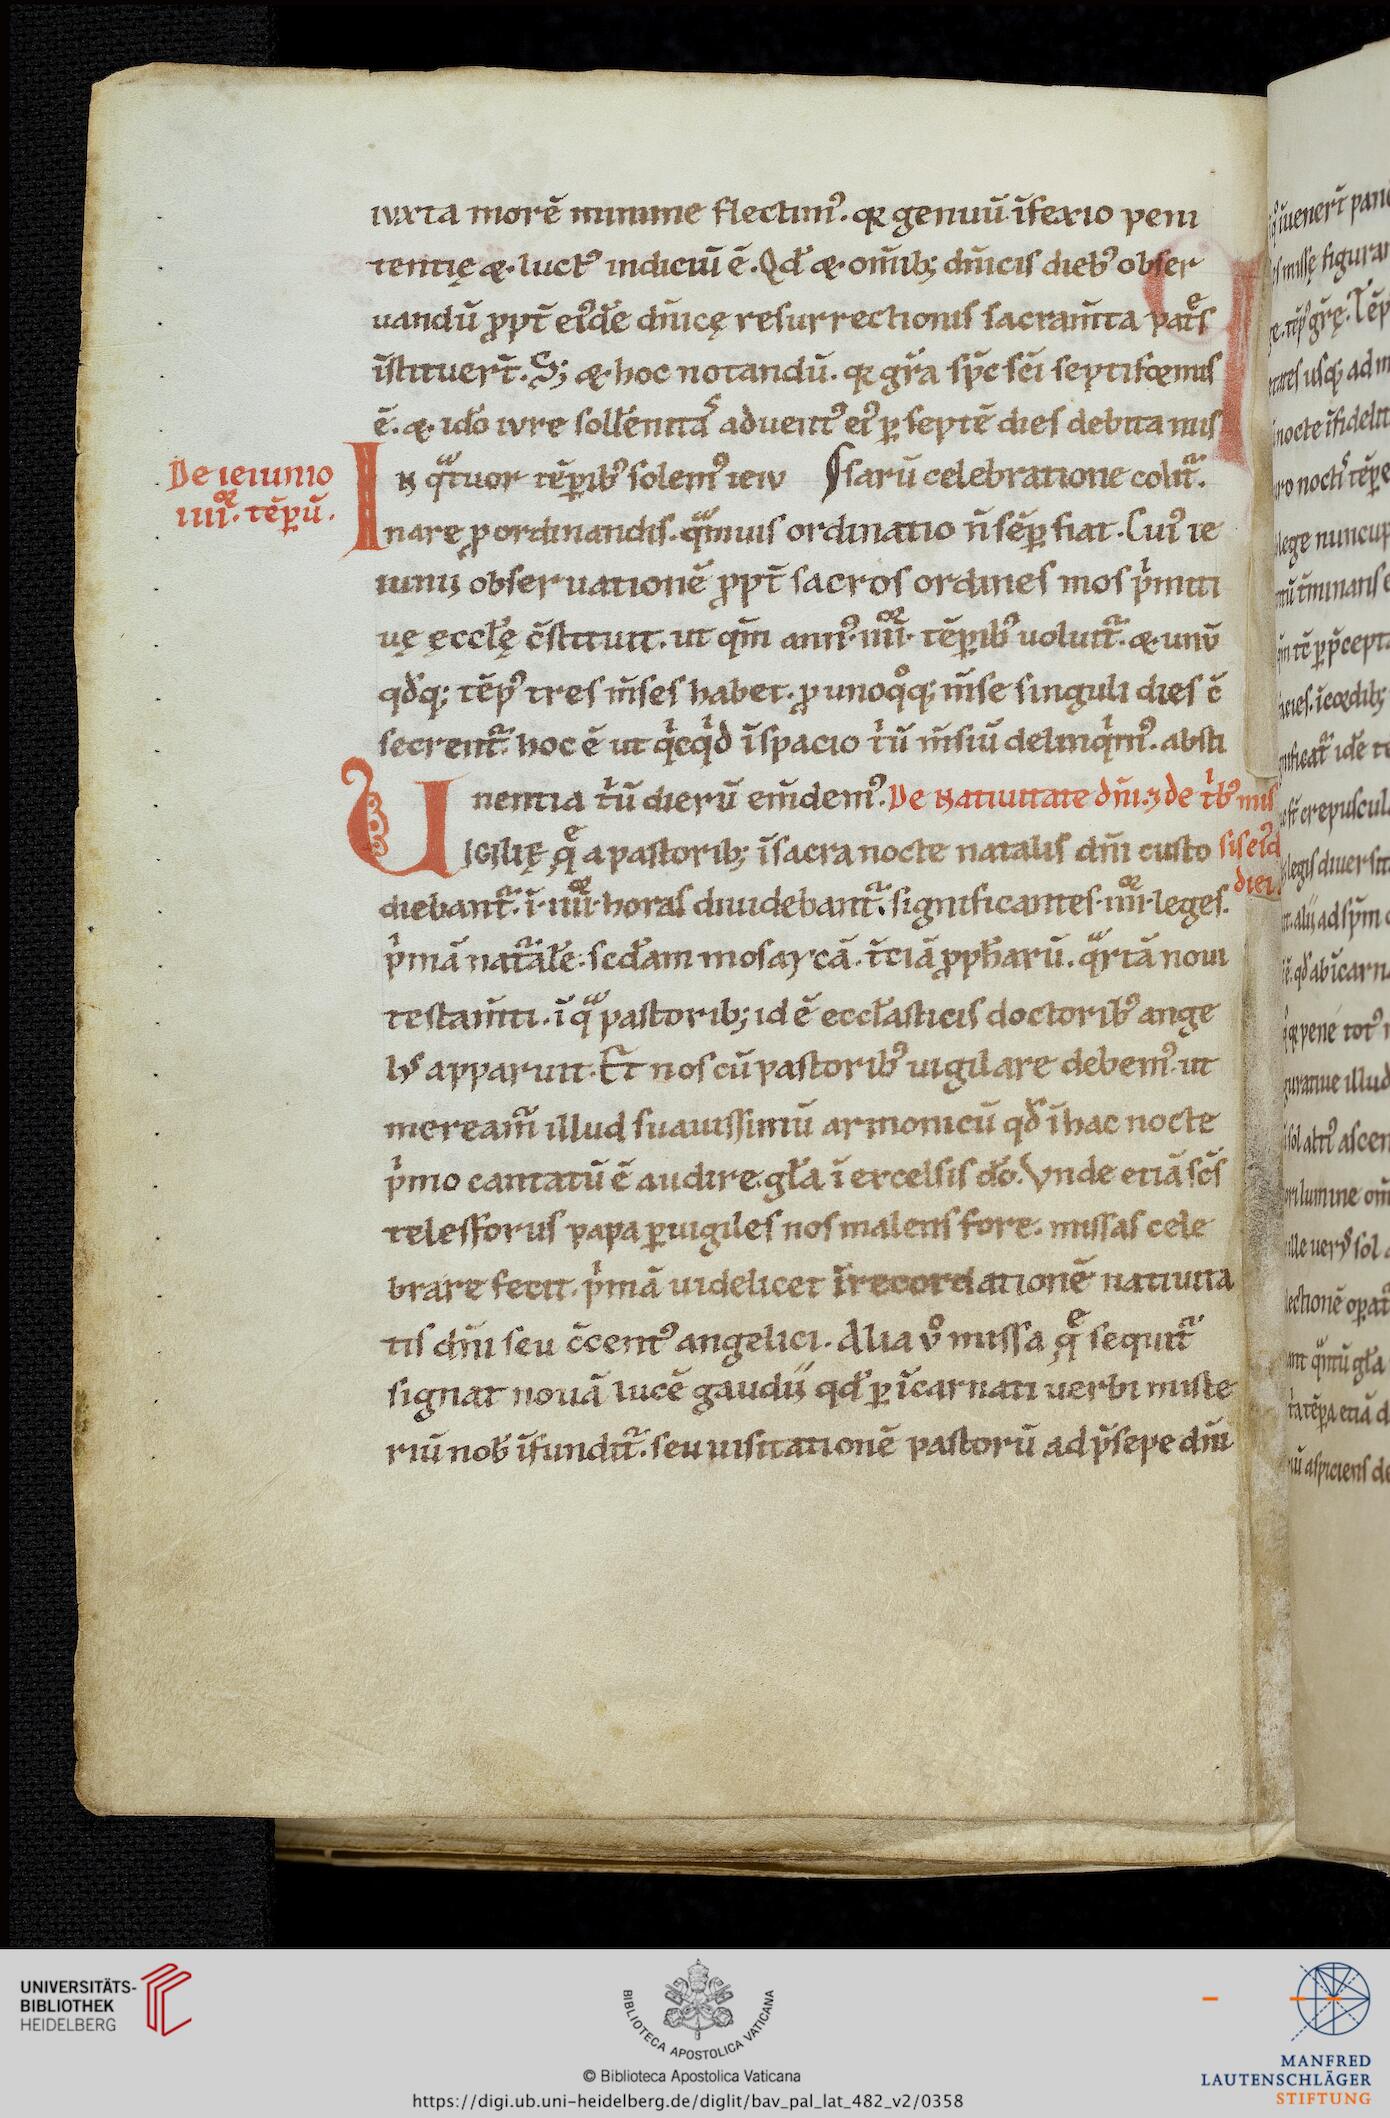 iuxta morē minime flectimꝰ. qr genuū īflexio peni
tentię æ. luctꝰ indiciū ē. Qd̄ æ. om̄ib; dn̄icis diebꝰ obser
uandū ꝓpt̄ eiꝰdē dn̄icę resurrectionis sacram̄ta patͤs
īstituer̄t. S; æ. hoc notandū. qr gr̄a sp̄c sc̄i septiformis
ē. æ. idō iure sollēnitaˢ aduentꝰ eiꝰ ꝑ septē dies debita mis
De ieiunio
iiiior. tēꝑū.
In qᵃtuor tēꝑibꝰ solemꝰ ieiu
ſsarū celebratione colit᷑.
nare ꝓ ordinandis. qᵃmuis ordinatio n̄ sēꝑ fiat. Cuiꝰ ie
iunii obseruationē ꝓpt̄ sacros ordines mos pⁱmiti
uę ęccl̄ę c̄stituit. ut qm̄ annꝰ iiiior. tēꝑibꝰ uoluit᷑. æ. unū
qdq; tēpꝰ tres m̄ses habet. ꝓ unoqᵒq; m̄se singuli dies c̄
secrent᷑. hoc ē ut qⁱcqⁱd ī spacio tⁱū m̄siū delinqⁱmꝰ. absti
nentia tⁱū dierū em̄demꝰ. De Natiuitate dn̄i. ⁊ de tⁱbꝰ mis
Uigilię qͤ a pastorib; ī sacra nocte natalis dn̄i custo sis eiꝰd
diei.
diebant᷑. ī. iiiior. horas diuidebant᷑. significantes. iiiior. leges.
pⁱmā nat᷑alē. scd̄am mosaycā. t̄ciā ꝓph̄arū. qᵃrtā noui
testam̄ti. ī qᵃ pastorib; id ē eccl̄asticis doctoribꝰ ange
lꝰ apparuit. Et nos cū pastoribꝰ uigilare debemꝰ. ut
meream᷑ illud suauissimū armonicū qd̄ ī hac nocte
pⁱmo cantatū ē audire. gl̄a ī excelsis dō. Vnde etiā sc̄s
telesforus papa ꝑuigiles nos malens fore. missas cele
brare fecit. pⁱmā uidelicet ī recordationē natiuita
tis dn̄i seu c̄centꝰ angelici. Alia ůo missa qͤ sequit᷑
signat nouā lucē gaudii qd̄ ꝑ īcarnati uerbi miste
riū nob̄ īfundit᷑. seu uisitationē pastorū ad p̄sepe dn̄i
UNIVERSITÄTS-
BIBLIOTHEK
HEIDELBERG
BIBLIOTECA APOSTOLICA VATICANA
© Biblioteca Apostolica Vaticana
https://digi.ub.uni-heidelberg.de/diglit/bav_pal_lat_482_v2/0358
MANFRED
LAUTENSCHLÄGER
STIFTUNG